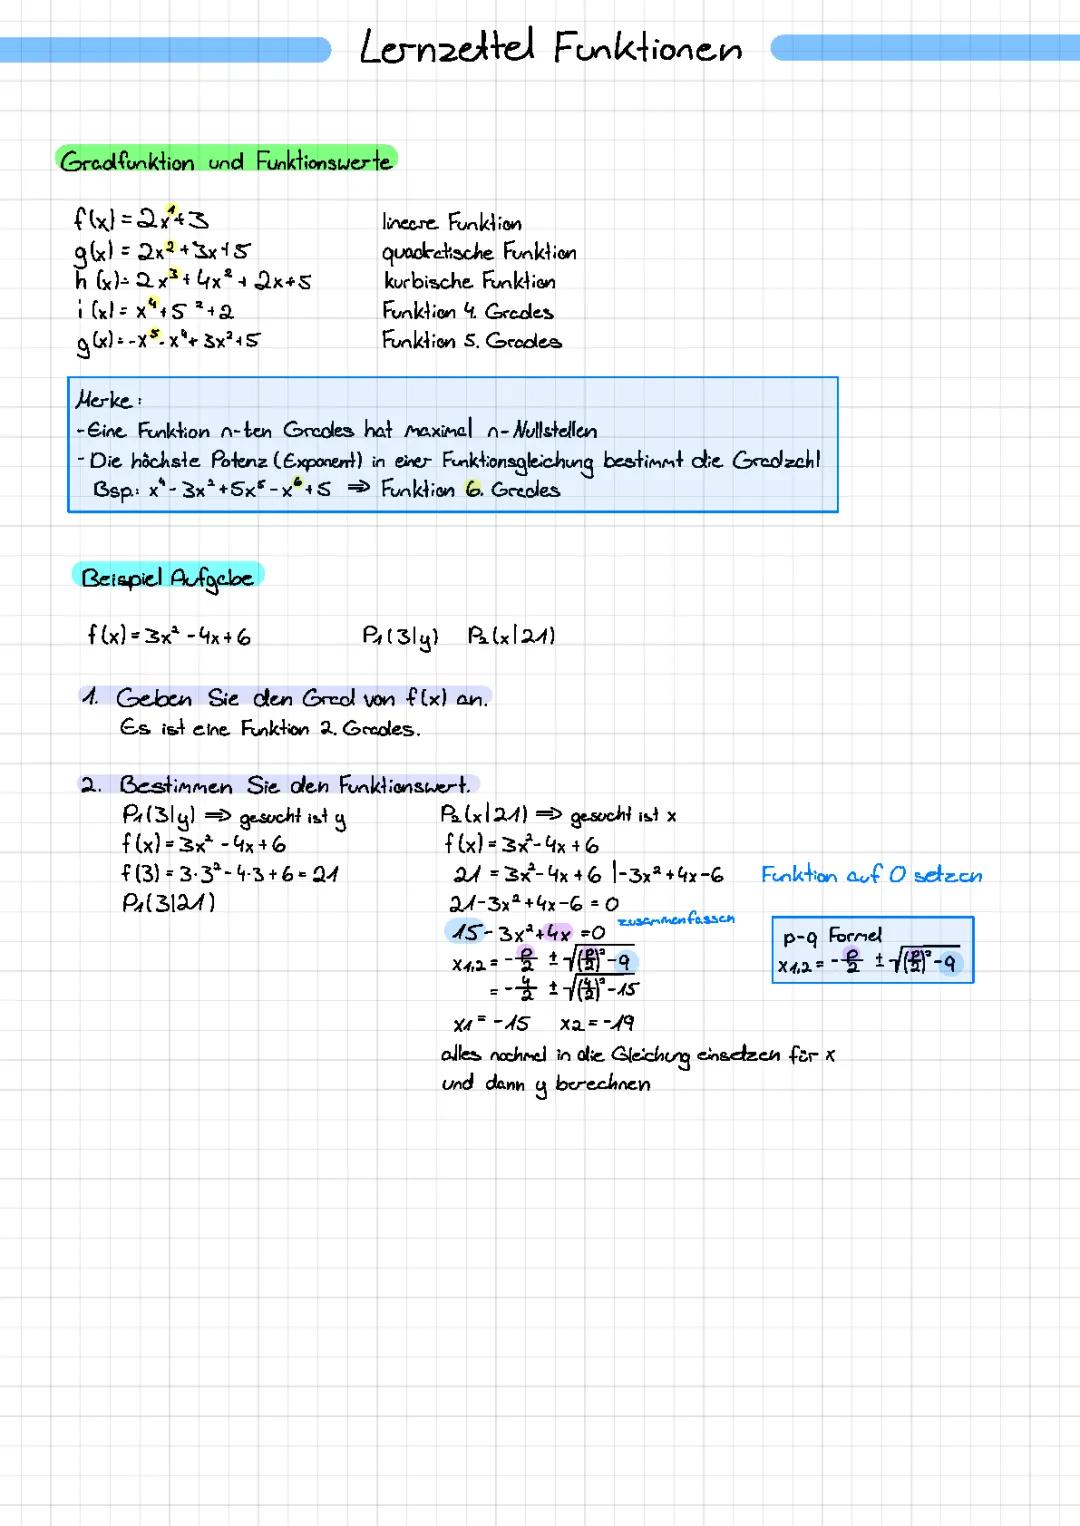 Lernzettel Funktionen
Gradfunktion und Funktionswerte
f(x) = 2x¹+3 lineare Funktion
g(x) = 2x² + 3x+5 quadratische Funktion
h (x) = 2x³ + 4x² + 2x+5 kurbische Funktion
i (x) = x⁴+5²+2 Funktion 4. Grades
g(x) = -x⁵-x⁴+ 3x²+5 Funktion 5. Grades
Merke:
-Eine Funktion n-ten Grades hat maximal n-Nullstellen
- Die höchste Potenz (Exponent) in einer Funktionsgleichung bestimmt die Gradzahl
Bsp.: x⁴- 3x² +5x⁵ - x⁶+5 ⇒ Funktion 6. Grades
Beispiel Aufgabe
f(x) = 3x² - 4x + 6 P₁(3|y) P₂(x|21)
1. Geben Sie den Grad von f(x) an.
Es ist eine Funktion 2. Grades.
2. Bestimmen Sie den Funktionswert.
P₁(3|y) ⇒ gesucht ist y
f(x) = 3x² - 4x + 6
f(3) = 3·3² - 4·3 + 6 = 21
P₁(3|21)
P₂(x|21) ⇒ gesucht ist x
f(x) = 3x²- 4x + 6
21 = 3x²- 4x + 6 |-3x²+4x-6 Funktion auf 0 setzen
21-3x²+4x-6 = 0
15-3x²+4x =0 zusammenfassen
x1,2 = -p/2 ± √(p/2)²-q
= -4/2 ± √(4/2)²-15
x1 = -15 x2 = -19
alles nochmal in die Gleichung einsetzen für x
und dann y berechnen
p-q Formel
x1,2 = -p/2 ± √(p/2)²-q